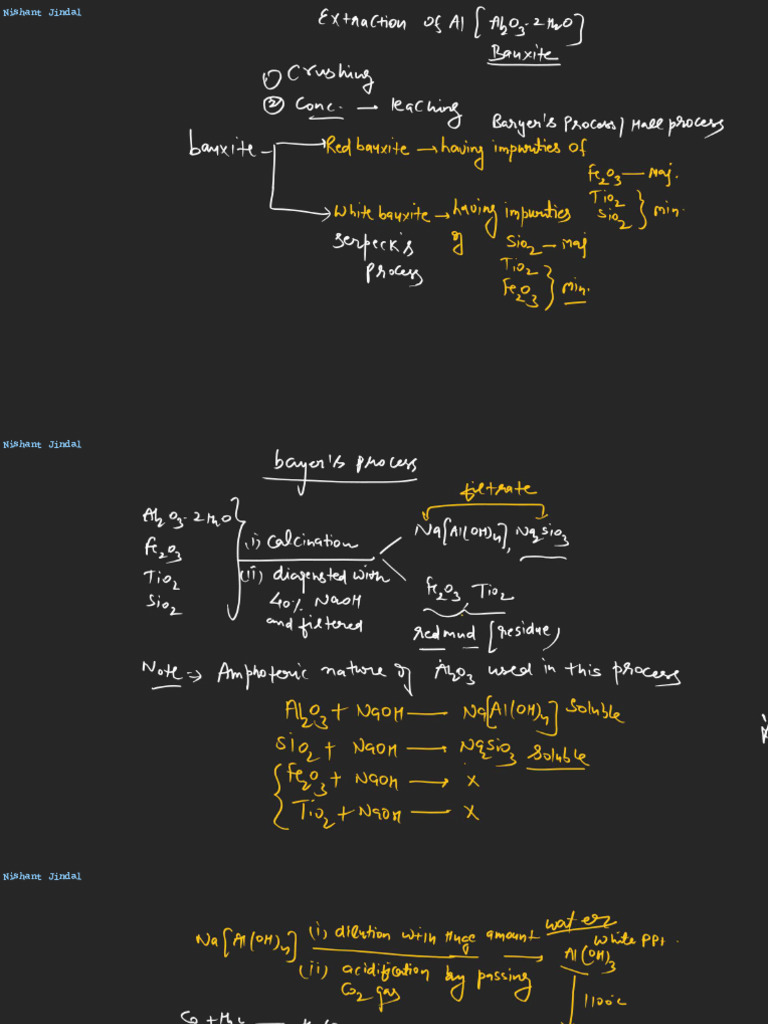 Nishant Jindal
Extraction of Al [Al2O3·2H2O]
Bauxite
① Crushing
② Conc. → leaching
Baryer's Process/Hall process
bauxite
Red bauxite → having impurities of
Fe2O3 — Maj.
TiO2
SiO2 } min.
White bauxite → having impurities
of
Serpeck's
Process
SiO2 — Maj
TiO2
Fe2O3 } min.
Nishant Jindal
bayer's process
filtrate
Al2O3·2H2O
Fe2O3
TiO2
SiO2
(i) calcination
(ii) diagensted with
40% NaOH
and filtered
Na[Al(OH)4], Na2SiO3
Fe2O3 TiO2
redmud (residue)
Note ⇒ Amphoteric nature of Al2O3 used in this process
Al2O3 + NaOH → Na[Al(OH)4] Soluble
SiO2 + NaOH → Na2SiO3 Soluble
Fe2O3 + NaOH → X
TiO2 + NaOH → X
Nishant Jindal
Na[Al(OH)4] (i) dilution with Huge amount water
(ii) acidification by passing
CO2 gas
→ Al(OH)3 White PPt.
1100°C